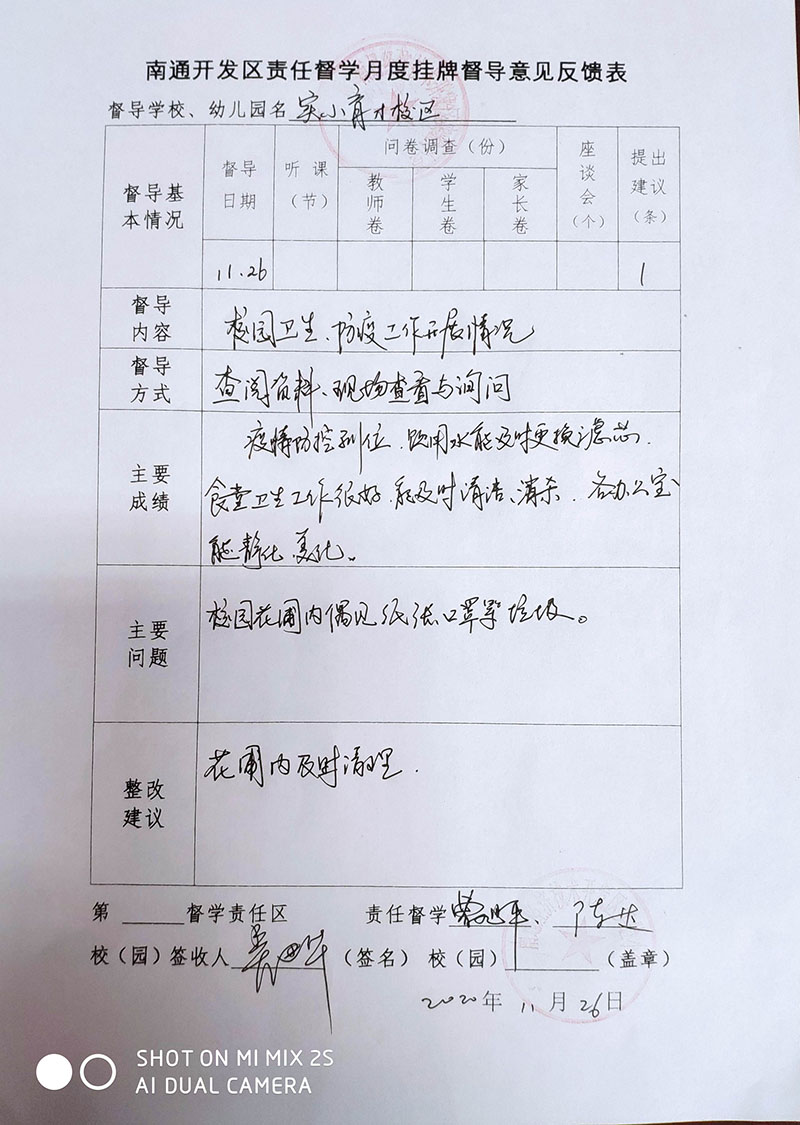 南通开发区责任督学月度挂牌督导意见反馈表
督导学校、幼儿园名 实小育才校区
督导基本情况
督导日期
听课（节）
问卷调查（份）
教师卷
学生卷
家长卷
座谈会（个）
提出建议（条）
11.26
1
督导内容
校园卫生、防疫工作开展情况
督导方式
查阅资料、现场查看与询问
主要成绩
疫情防控到位，饮用水能及时更换滤芯.
食堂卫生工作很好，能及时清洁、消杀. 各办公室
能静化 美化。
主要问题
校园花圃内偶见纸张口罩等垃圾。
整改建议
花圃内及时清理.
第 督学责任区 责任督学
校（园）签收人 （签名） 校（园） （盖章）
2020年 11月26日
SHOT ON MI MIX 2S
AI DUAL CAMERA